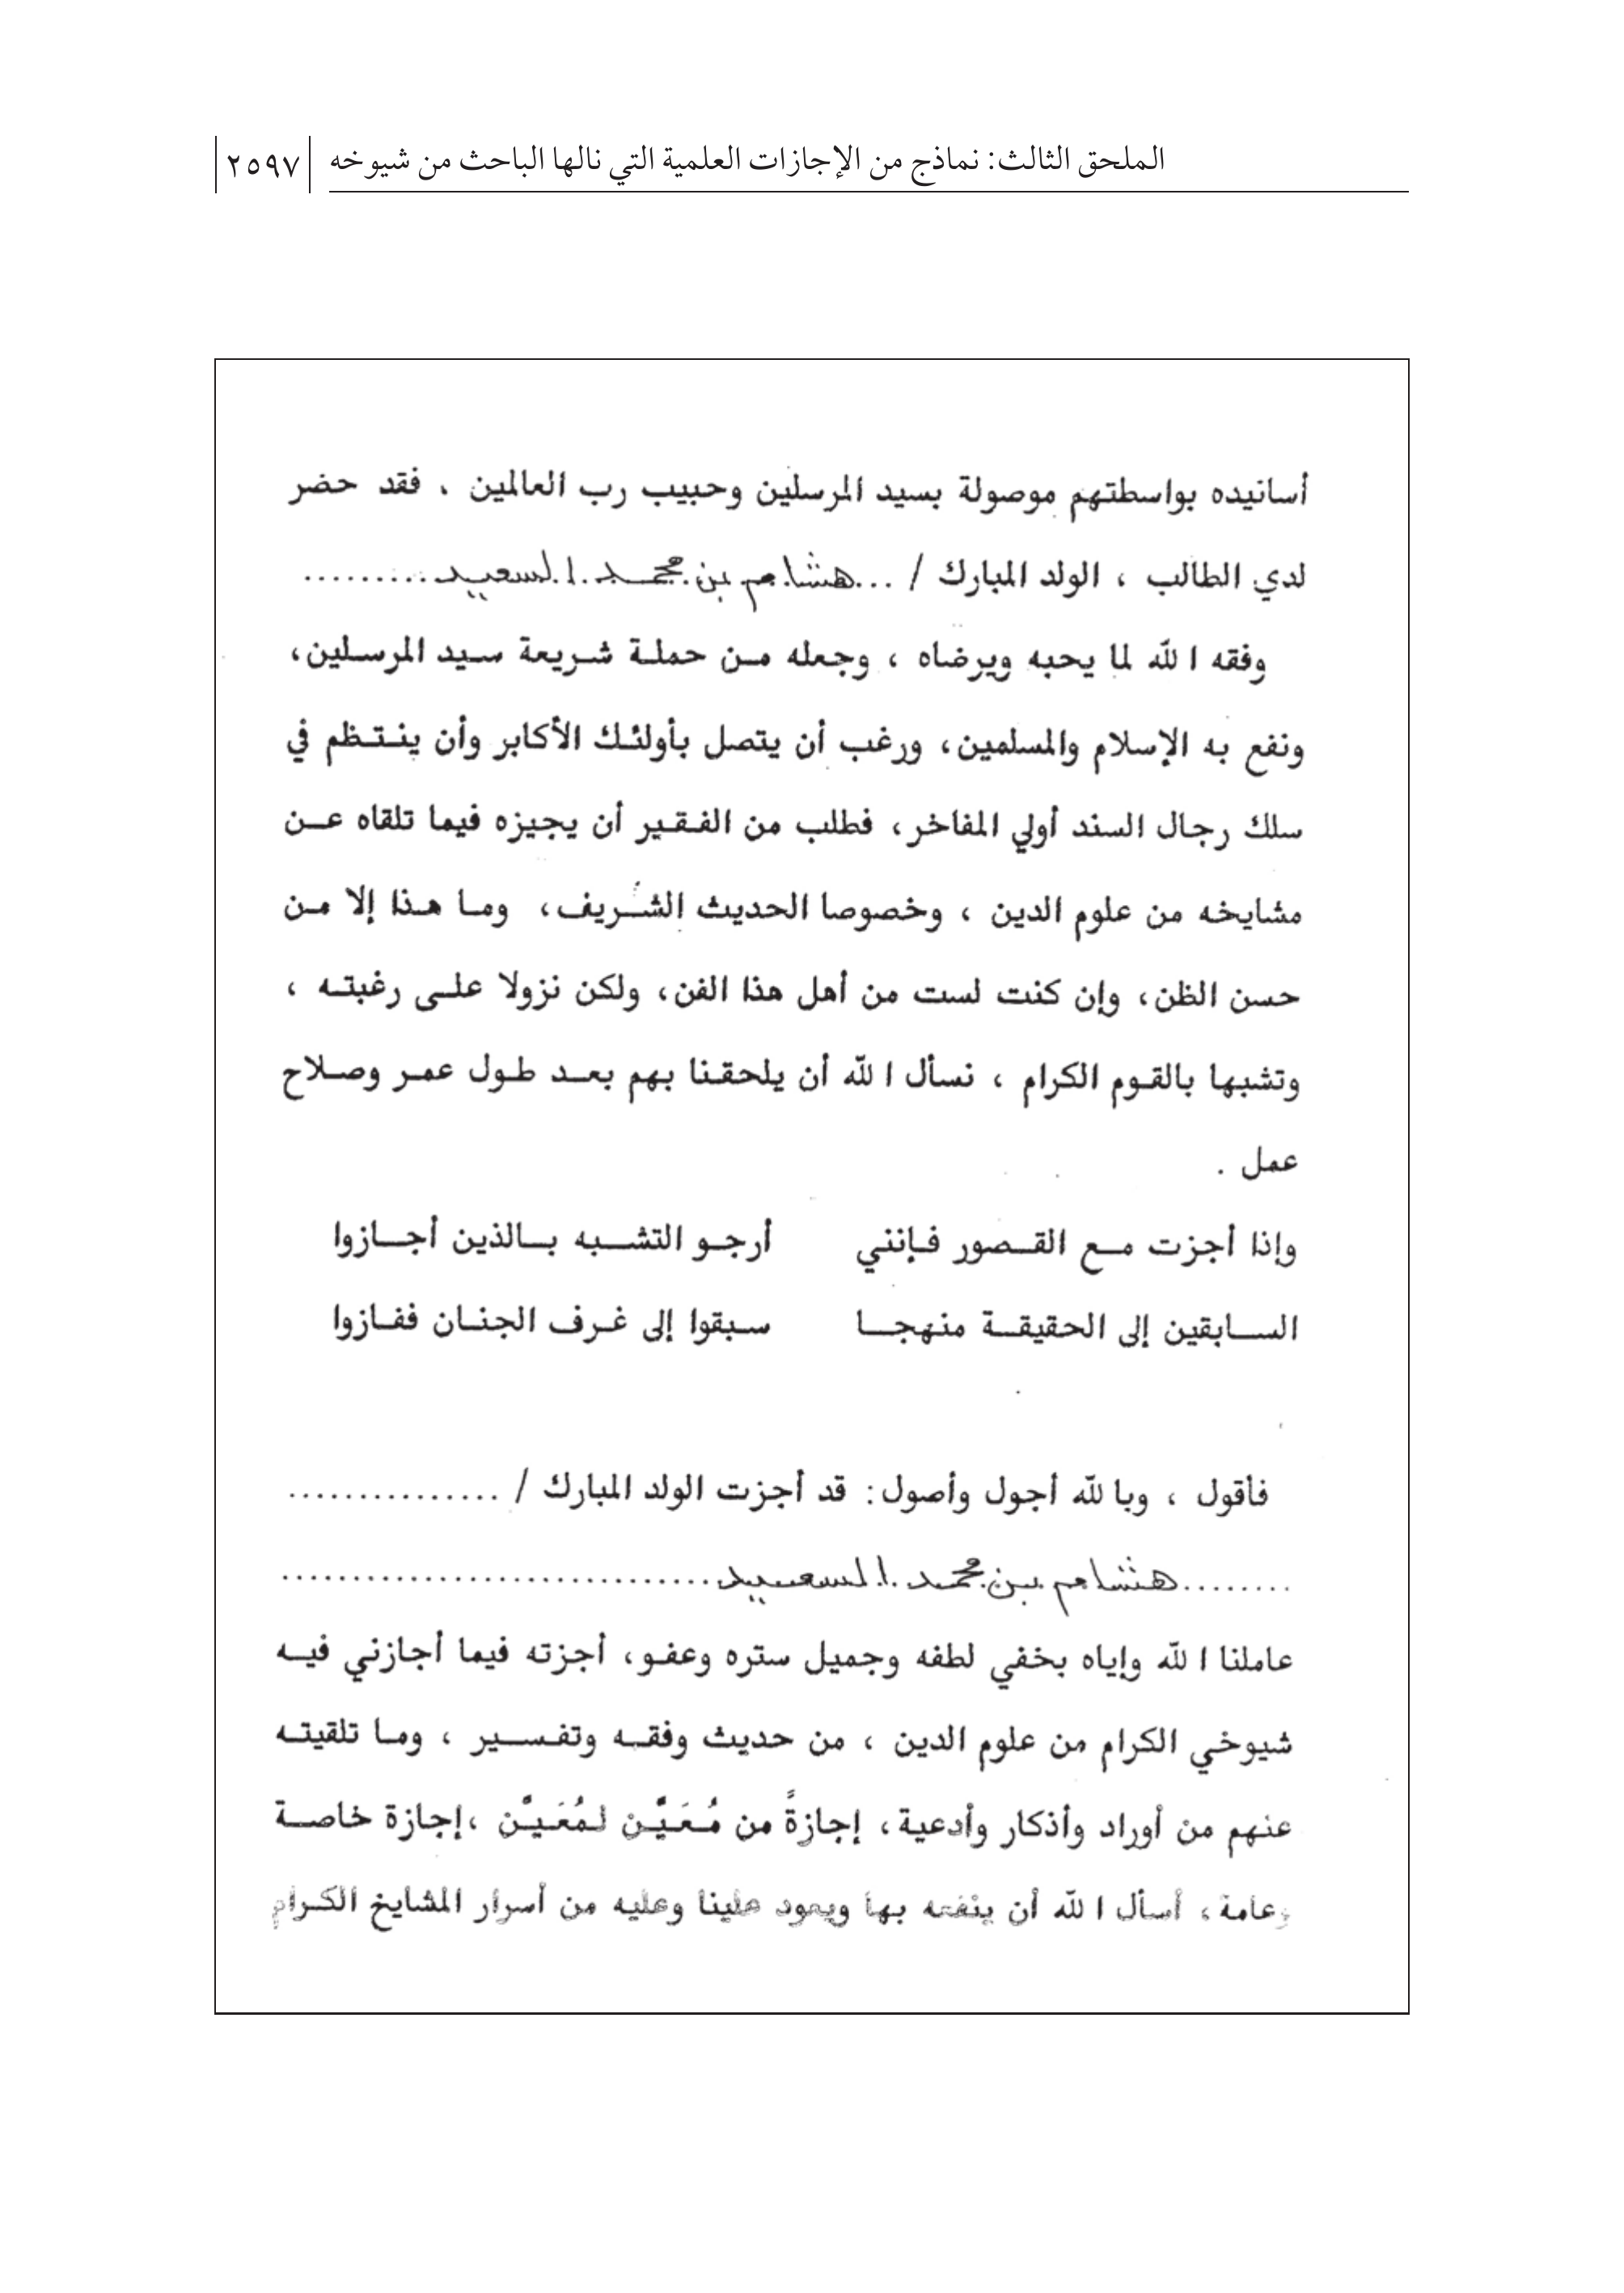 الملحق الثالث: نماذج من الإجازات العلمية التي نالها الباحث من شيوخه ٢٥٩٧
أسانيده بواسطتهم موصولة بسيد المرسلين وحبيب رب العالمين ، فقد حضر
لدي الطالب ، الولد المبارك / ...هشام بن محمد السعيد..........
وفقه الله لما يحبه ويرضاه ، وجعله من حملة شريعة سيد المرسلين،
ونفع به الإسلام والمسلمين، ورغب أن يتصل بأولئك الأكابر وأن ينتظم في
سلك رجال السند أولي المفاخر، فطلب من الفقير أن يجيزه فيما تلقاه عن
مشايخه من علوم الدين ، وخصوصا الحديث الشريف، وما هذا إلا من
حسن الظن، وإن كنت لست من أهل هذا الفن، ولكن نزولا على رغبته ،
وتشبها بالقوم الكرام ، نسأل الله أن يلحقنا بهم بعد طول عمر وصلاح
عمل .
وإذا أجزت مع القصور فإنني أرجو التشبه بالذين أجازوا
السابقين إلى الحقيقة منهجا سبقوا إلى غرف الجنان ففازوا
فأقول ، وبالله أجول وأصول: قد أجزت الولد المبارك / ...............
........هشام بن محمد السعيد..............................
عاملنا الله وإياه بخفي لطفه وجميل ستره وعفو، أجزته فيما أجازني فيه
شيوخي الكرام من علوم الدين ، من حديث وفقه وتفسير ، وما تلقيته
عنهم من أوراد وأذكار وأدعية، إجازةً من مُعَيَّن لمُعَيَّن ،إجازة خاصة
وعامة، أسأل الله أن ينفعه بها ويعود علينا وعليه من أسرار المشايخ الكرام